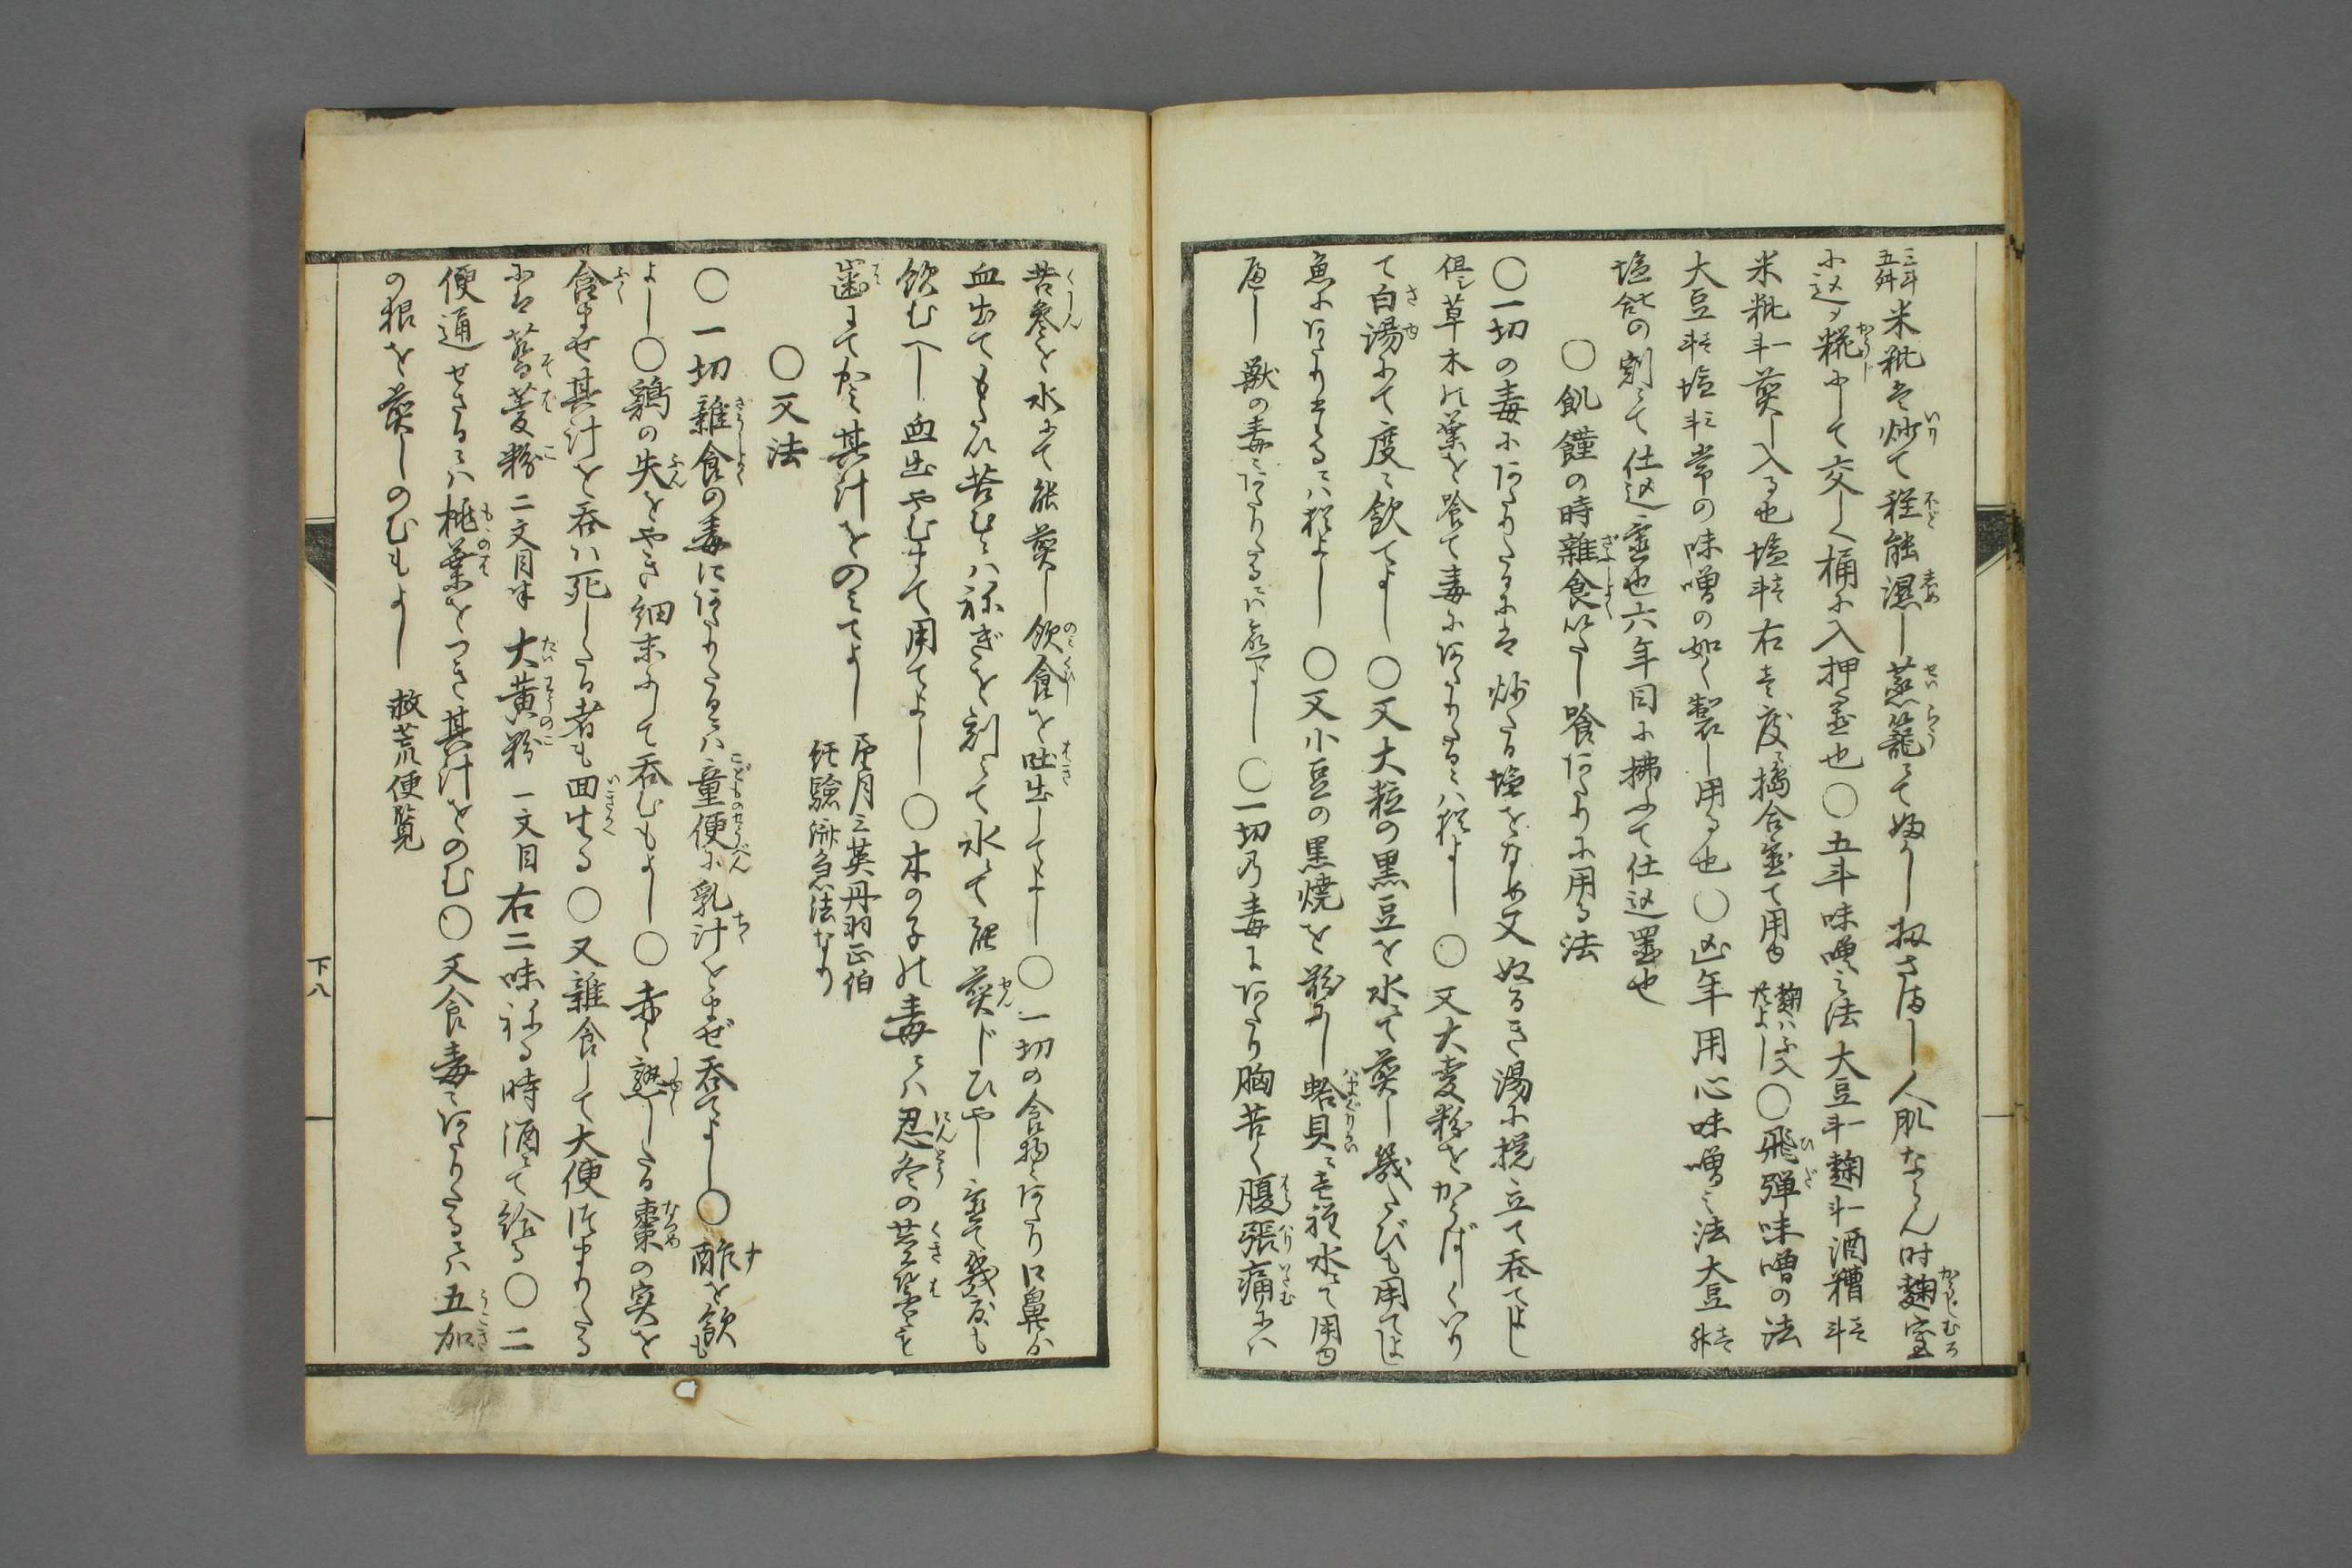 三斗五舛米粃を炒て程能濕し蒸籠にて婦かし扨さまし人肌ならん時麹室
に込て糀にして交へ桶に入押置也〇五斗味噌之法大豆一斗麹一斗酒糟壱斗
米粃一斗煎し入る也塩壱斗右を度に搗合置て用ゆ〇飛彈味噌の法
大豆壱斗塩三斗常の味噌の如く製し用る也〇凶年用心味噌之法大豆壱舛
塩の割にて仕込置也六年目に拂ふて仕込置也
〇飢饉の時雜食いたし喰あたりに用る法
〇一切の毒にあたりたるには炒たる塩をなめ又ぬるき湯に攪立て呑てよし
但草木の葉を喰て毒にあたりたるには猶よし〇又大麦粉をかうばしくいり
て白湯にて度々飲てよし〇又大粒の黒豆を水にて煎し幾たびも用てよし
魚にあたりたるには猶よし〇又小豆の黒焼を粉にし蛤貝に壱程水にて用ゆ
へし獣の毒にあたりたるには愈よし〇一切の毒にあたり胸苦く腹張痛には
苦参を水にて能煎し飲食を吐出してよし〇一切の食物にあたり口鼻より
血出てもたへ苦むにはねぎを刻にて水にて能煎じひやし置て幾度も
飲むへし血出やむまて用てよし〇木の子の毒には忍冬の茎葉を
歯にてかみ其汁をのみてよし
望月三英丹羽正伯
経驗濟急法なり
〇又法
〇一切雜食の毒にあたりたるには童便に乳汁をまぜ呑てよし〇酢を飲も
よし〇鶏の失をやき細末にして呑むもよし〇赤く熟したる棗の実を
含ませ其汁を呑ハ死したる者も回生る〇又雜食して大便つまりたる
には蕎麦粉二文目半大黄粉一文目右二味ねる時酒にて給る〇二
便通せさるには桃葉をつき其汁をのむ〇又食毒にあたりたるには五加
の根を煎しのむもよし
救荒便覧
下八